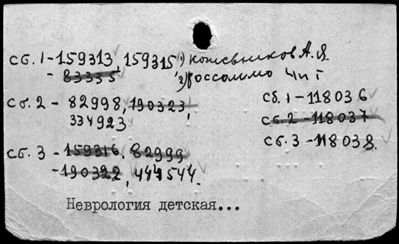 сб. 1 - 159313, 159315 1) Кожевников А.Я.
- 83335 2) Россолимо
сб. 2 - 82998, 190323,
334923
сб. 3 - 159316, 82999
- 190322, 444544.
сб. 1 - 118036
сб. 2 - 118037
сб. 3 - 118038.
Неврология детская...